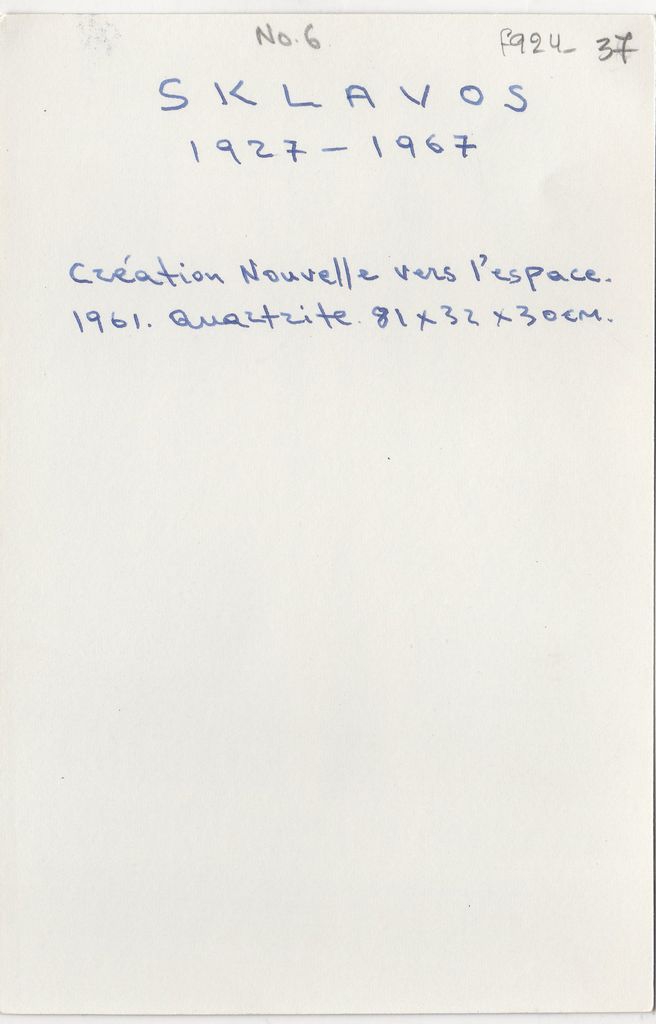 No. 6 F924- 37
SKLAVOS
1927-1967
Création Nouvelle vers l'espace.
1961. Quartzite. 81x32x30cm.